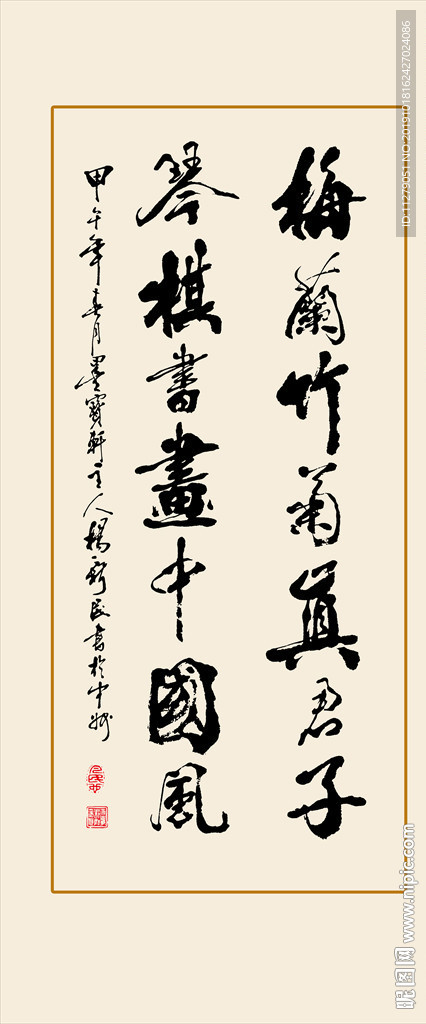 梅蘭竹菊真君子
琴棋書畫中國風
甲午年春月墨寶軒主人楊新民書於中州
ID:11279051 NO:20191018162427024086
昵图网 www.nipic.com